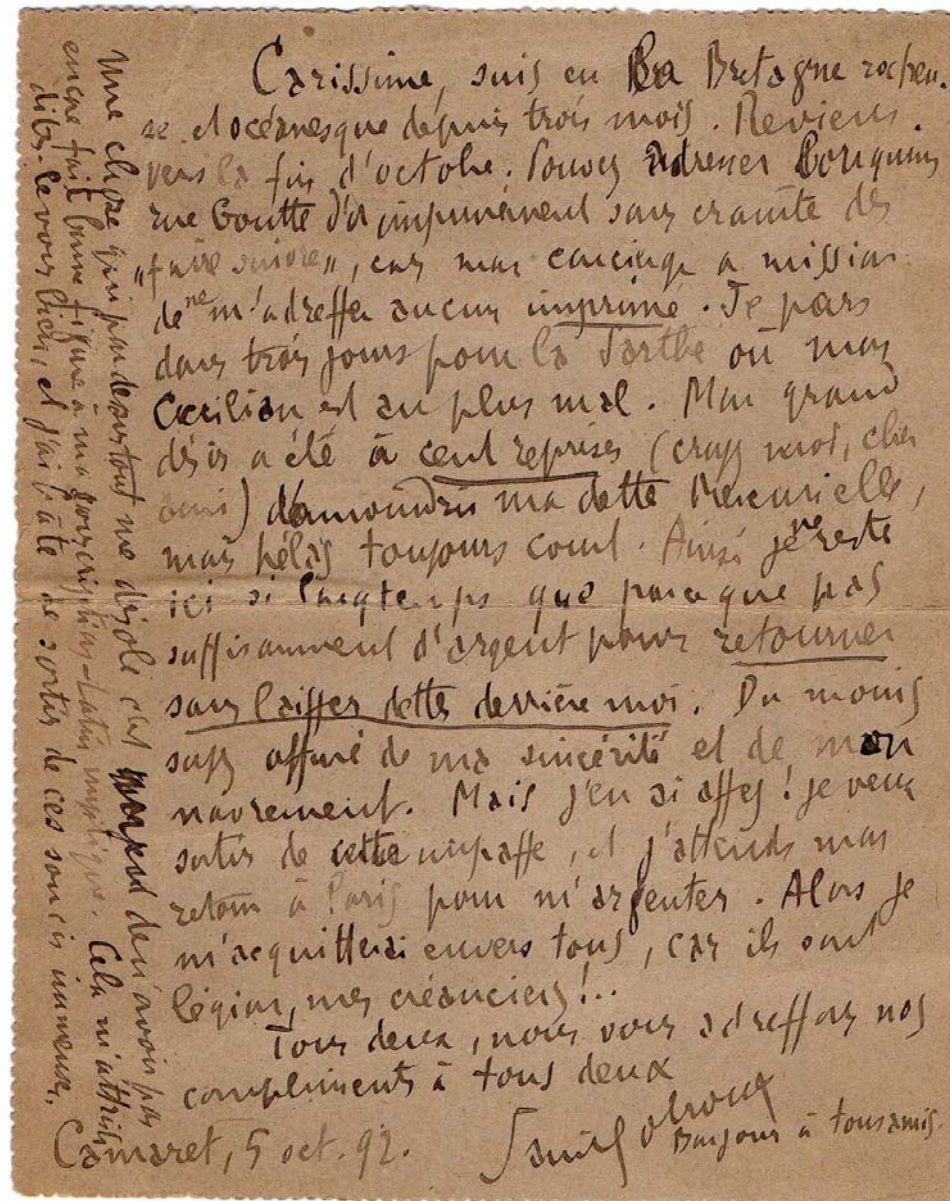 Carissime, suis en La Bretagne rocheu-
se et océanesque depuis trois mois. Reviens
vers la fin d'octobre. Pouvez adresser bouquins
rue Goutte d'Or impunément sans crainte des
"faire suivre", car mon concierge a mission
de ne m'adresser aucun imprimé. Je pars
dans trois jours pour la Sarthe où mon
Cœcilian est au plus mal. Mon grand
désir a été à cent reprises (croyez moi, cher
ami) d'amoindrir ma dette Mercurielle,
mais hélas toujours court. Ainsi je ne reste
ici si longtemps que parce que pas
suffisamment d'argent pour retourner
sans laisser dettes derrière moi. Du moins
soyez assuré de ma sincérité et de mon
navrement. Mais j'en ai assez ! je veux
sortir de cette impasse, et j'attends mon
retour à Paris pour m'argenter. Alors je
m'acquitterai envers tous, car ils sont
légion, mes créanciers !..
Tous deux, nous vous adressons nos
compliments à tous deux
Camaret, 5 oct. 92.
Bonjour à tous amis.
Une chose qui par dessus tout me désole c'est de n'avoir pas
encore fait bonne figure à ma souscription-Latin mystique. Cela m'attriste
dites-le vous bien, et j'ai hâte de sortir de ces soucis immenses.